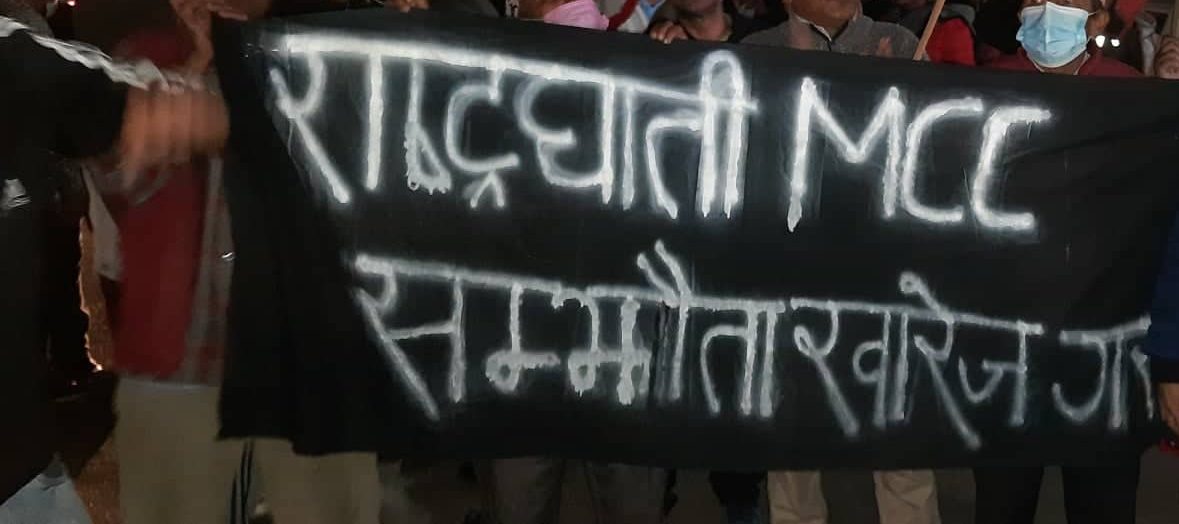 राष्ट्रघाती MCC
सम्झौता खारेज